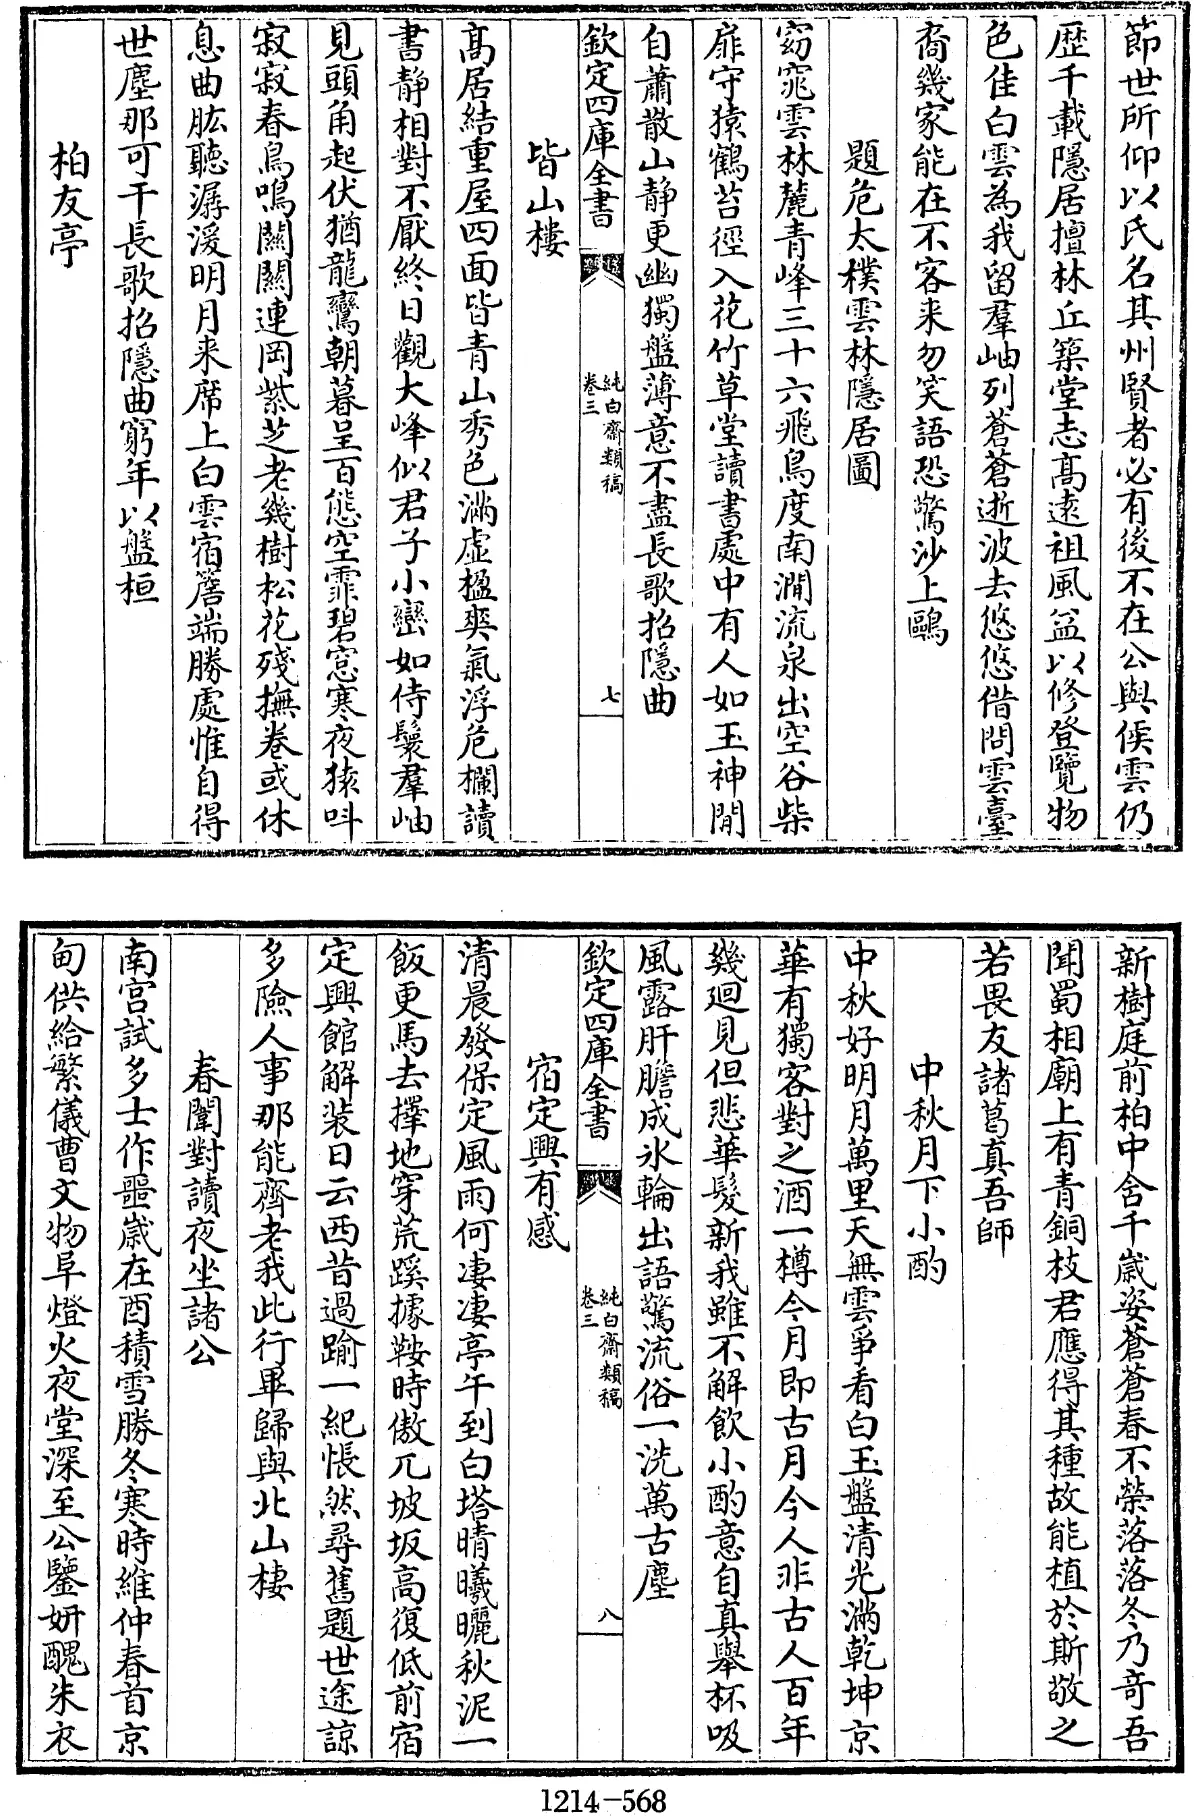 節世所仰以氏名其州賢者必有後不在公與侯雲仍
歷千載隱居擅林丘築堂志高遠祖風益以修登覽物
色佳白雲為我留羣岫列蒼蒼逝波去悠悠借問雲臺
裔幾家能在不客来勿笑語恐驚沙上鷗
題危太樸雲林隱居圖
窈窕雲林麓青峰三十六飛鳥度南澗流泉出空谷柴
扉守猿鶴苔徑入花竹草堂讀書處中有人如玉神閒
自蕭散山靜更幽獨盤薄意不盡長歌招隱曲
欽定四庫全書
純白齋類稿
卷三
七
皆山樓
高居結重屋四面皆青山秀色滿虛楹爽氣浮危欄讀
書靜相對不厭終日觀大峰似君子小巒如侍鬟羣岫
見頭角起伏猶龍鸞朝暮呈百態空霏碧窓寒夜猿呌
寂寂春鳥鳴關關連岡紫芝老幾樹松花殘撫卷或休
息曲肱聽潺湲明月来席上白雲宿簷端勝處惟自得
世塵那可干長歌招隱曲窮年以盤桓
柏友亭
新樹庭前柏中含千歲姿蒼蒼春不榮落落冬乃奇吾
聞蜀相廟上有青銅枝君應得其種故能植於斯敬之
若畏友諸葛真吾師
中秋月下小酌
中秋好明月萬里天無雲爭看白玉盤清光滿乾坤京
華有獨客對之酒一樽今月即古月今人非古人百年
幾迴見但悲華髮新我雖不解飲小酌意自真舉杯吸
風露肝膽成氷輪出語驚流俗一洗萬古塵
欽定四庫全書
純白齋類稿
卷三
八
宿定興有感
清晨發保定風雨何凄凄亭午到白塔晴曦曬秋泥一
飯更馬去擇地穿荒蹊據鞍時傲兀坡坂高復低前宿
定興館解装日云西昔過踰一紀悵然尋舊題世途諒
多險人事那能齊老我此行畢歸與北山棲
春闈對讀夜坐諸公
南宮試多士作噩歲在酉積雪勝冬寒時維仲春首京
甸供給繁儀曹文物阜燈火夜堂深至公鑒妍醜朱衣
1214-568